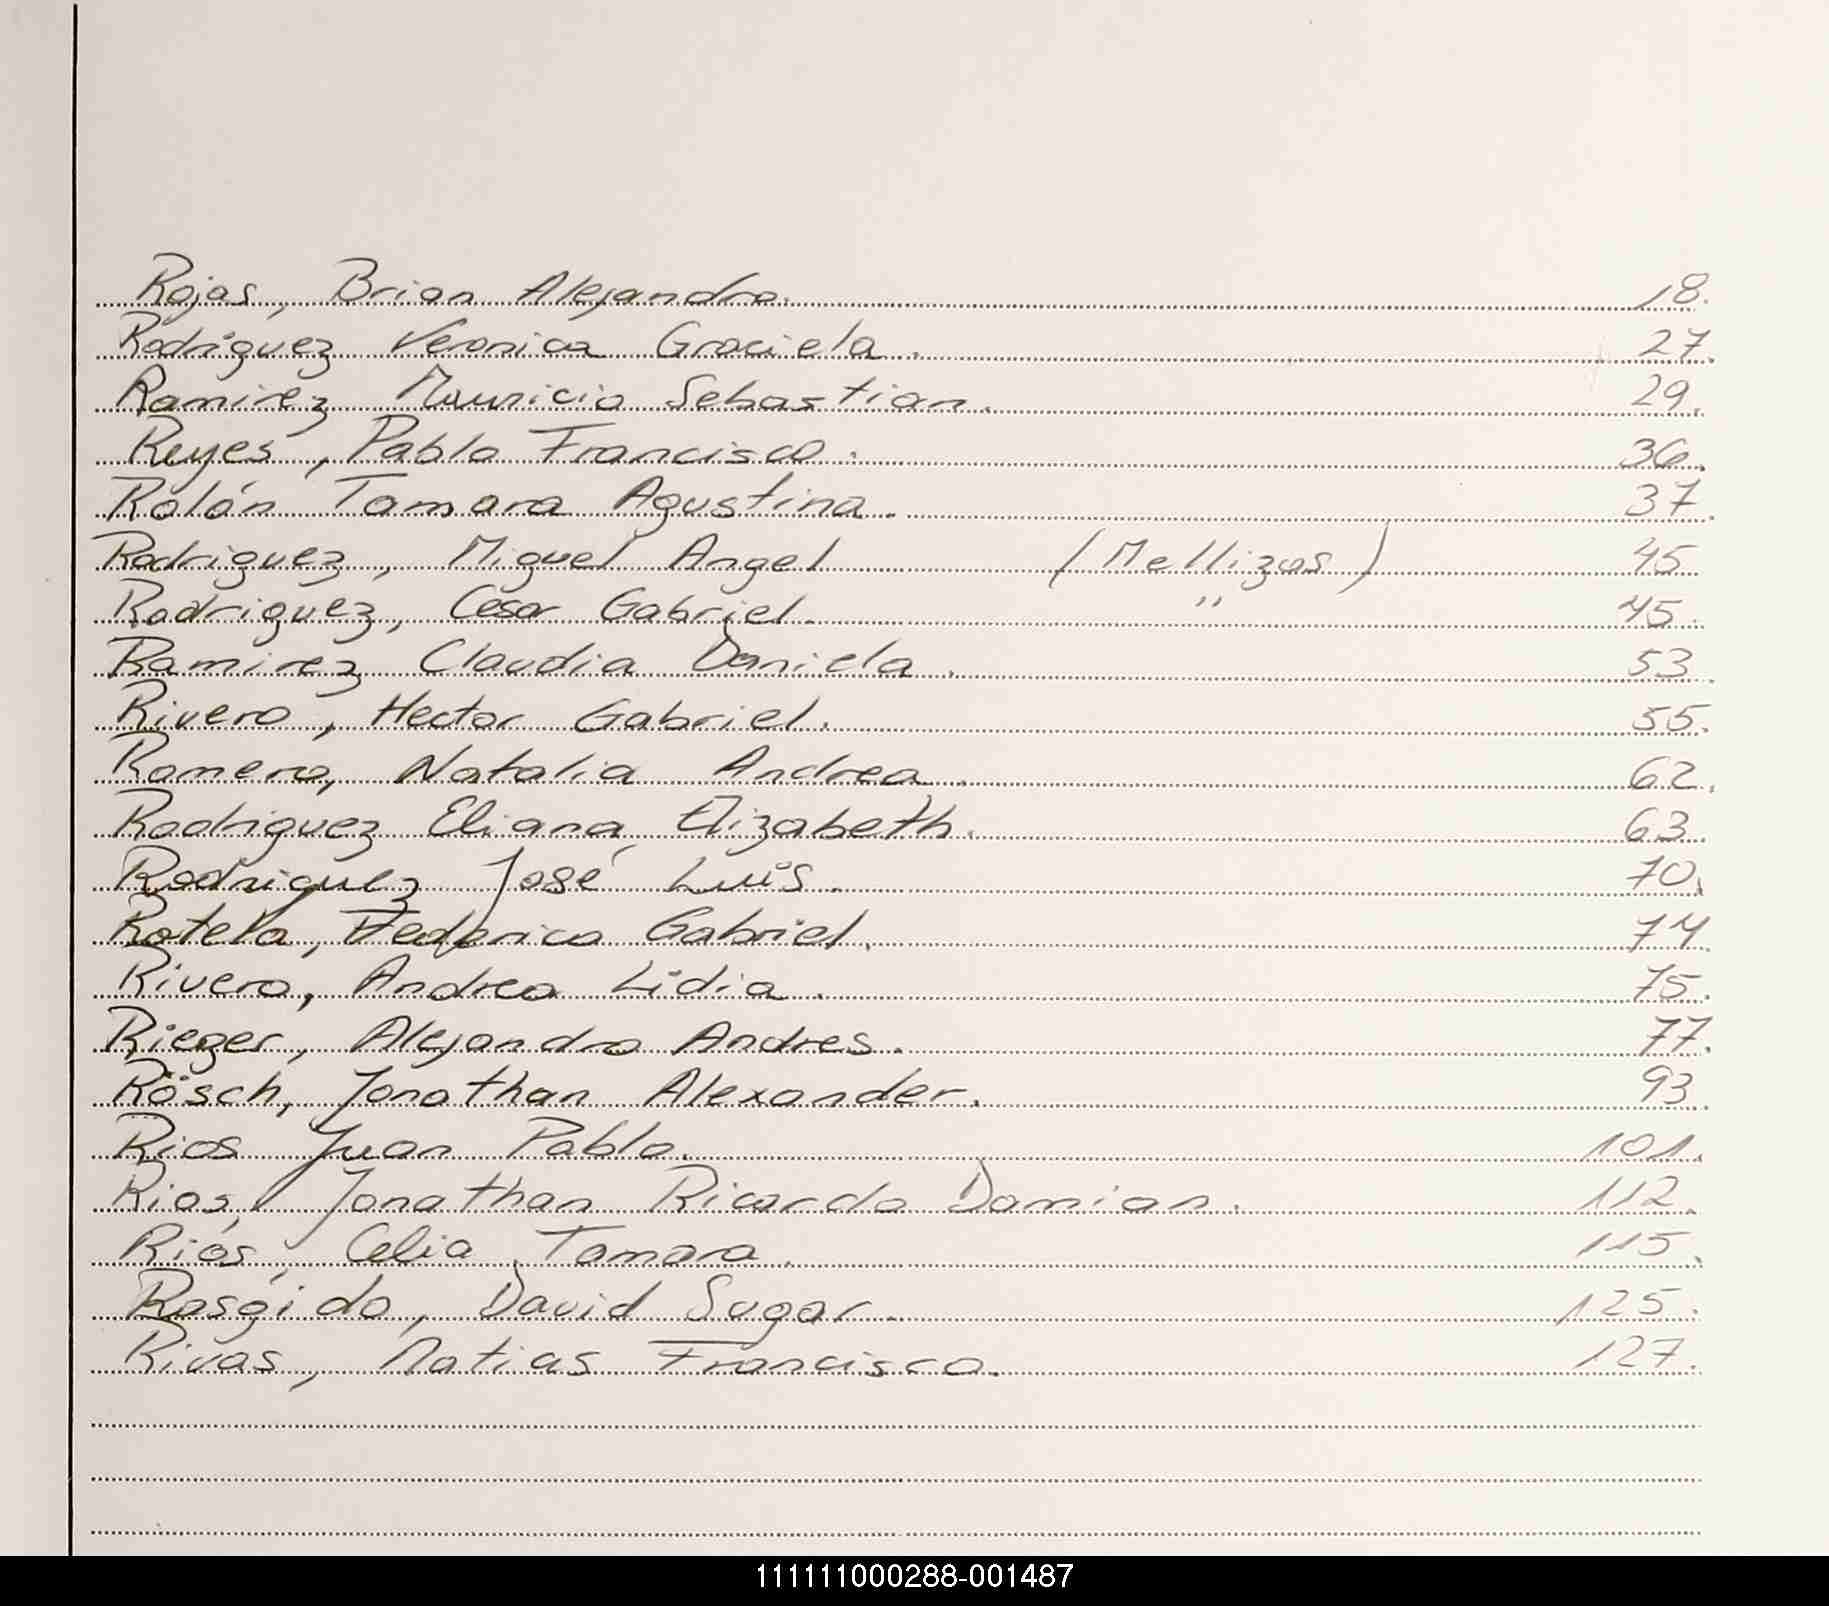 Rojas, Brian Alejandro. 18.
Rodriguez Veronica Graciela. 27.
Ramirez Mauricio Sebastian. 29.
Reyes, Pablo Francisco. 36.
Rolón Tamara Agustina. 37.
Rodriguez, Miguel Angel (Mellizos) 45
Rodriguez, Cesar Gabriel. " 45.
Ramirez Claudia Daniela. 53.
Rivero, Hector Gabriel. 55.
Romero, Natalia Andrea. 62.
Rodriguez Eliana Elizabeth. 63.
Rodriguez José Luis. 70.
Rotela, Federico Gabriel. 74.
Rivero, Andrea Lidia. 75.
Rieger, Alejandro Andres. 77.
Rösch, Jonathan Alexander. 93.
Rios Juan Pablo. 101.
Rios, Jonathan Ricardo Damian. 112.
Riós, Celia Tamara. 115.
Rasgido, David Sugar. 125.
Rivas, Matias Francisco. 127.
111111000288-001487